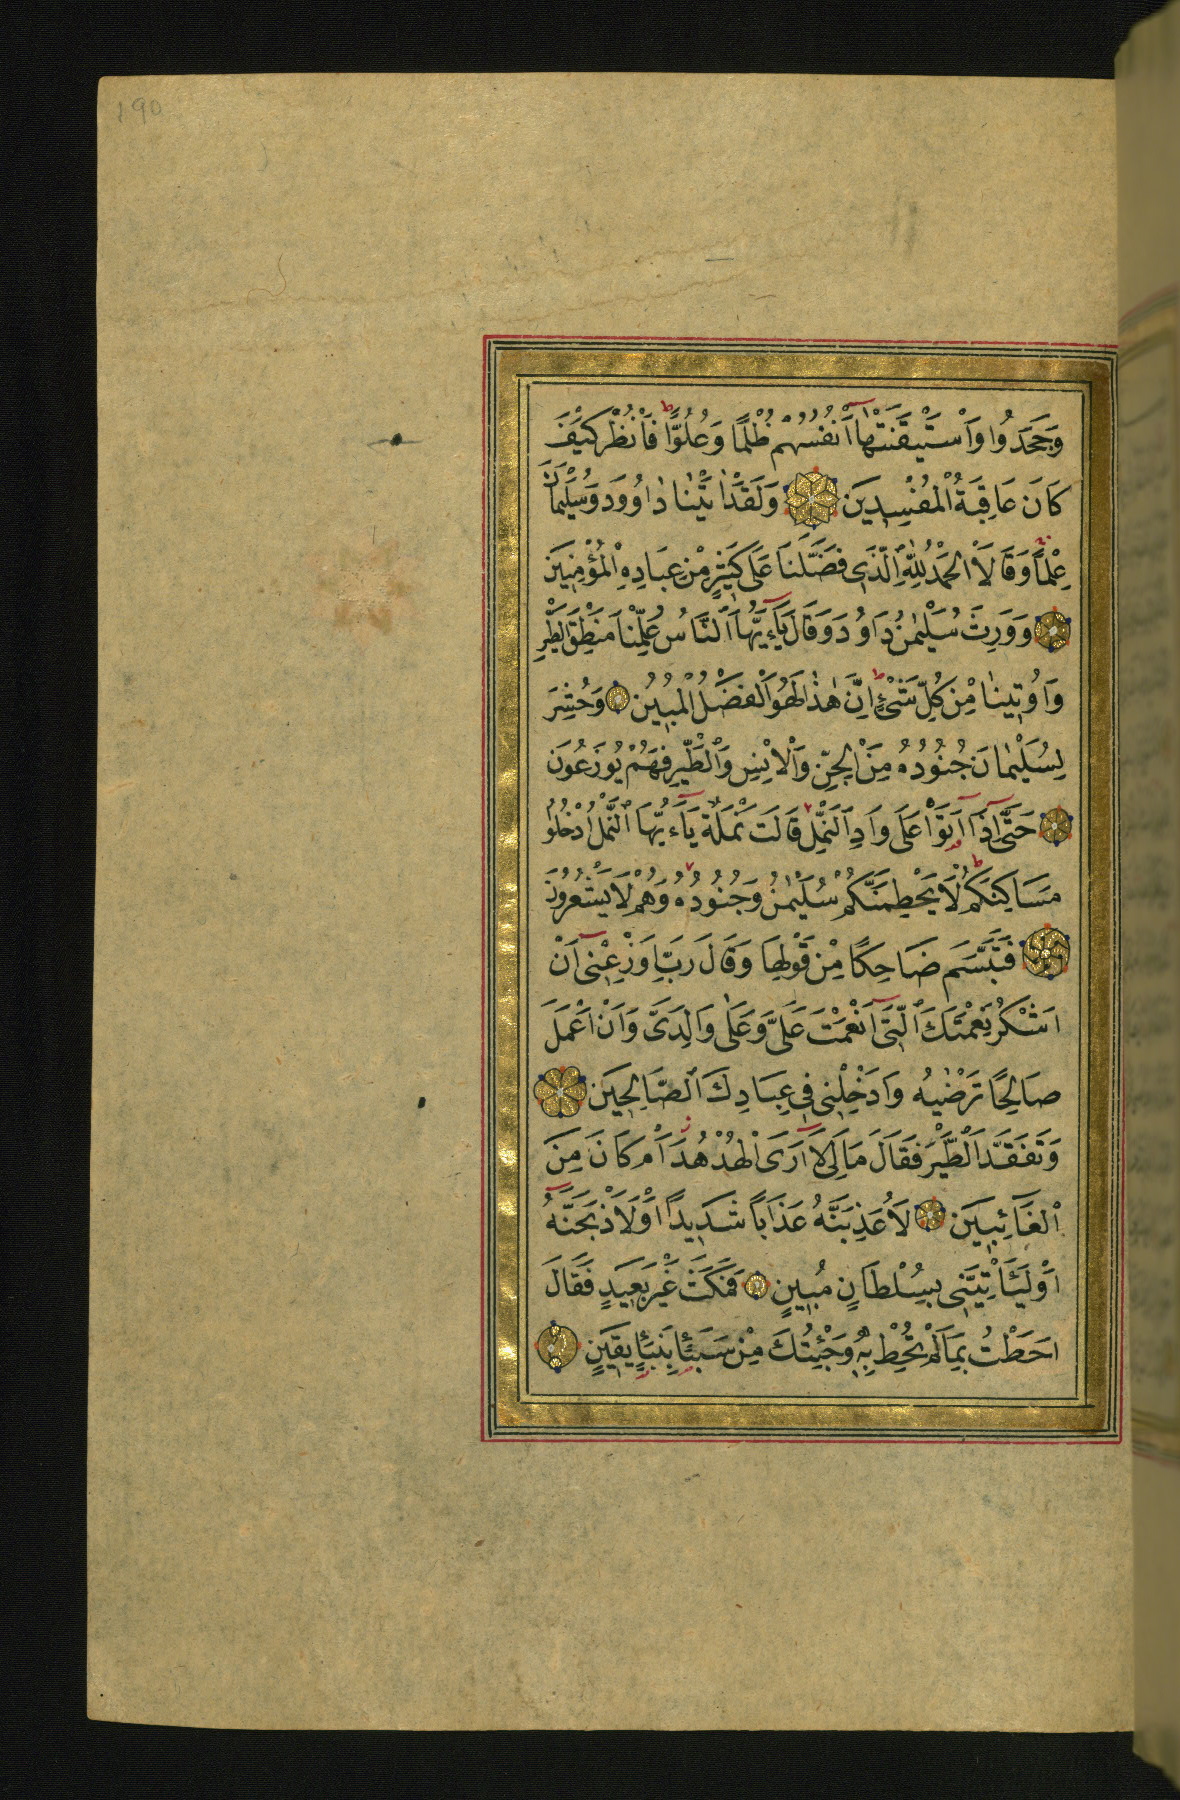 190
وَجَحَدُوا وَاسْتَيْقَنَتْهَا أَنْفُسُهُمْ ظُلْمًا وَعُلُوًّا فَانْظُرْ كَيْفَ
كَانَ عَاقِبَةُ الْمُفْسِدِينَ وَلَقَدْ اٰتَيْنَا دَاوُودَ وَسُلَيْمَانَ
عِلْمًا وَقَالَا الْحَمْدُ لِلّٰهِ الَّذِي فَضَّلَنَا عَلَى كَثِيرٍ مِنْ عِبَادِهِ الْمُؤْمِنِينَ
وَوَرِثَ سُلَيْمٰنُ دَاوُدَ وَقَالَ يَآءَيُّهَا النَّاسُ عُلِّمْنَا مَنْطِقَ الطَّيْرِ
وَاُوتِينَا مِنْ كُلِّ شَيْءٍ اِنَّ هٰذَا لَهُوَ الْفَضْلُ الْمُبِينُ وَحُشِرَ
لِسُلَيْمَانَ جُنُودُهُ مِنَ الْجِنِّ وَالْاِنْسِ وَالطَّيْرِ فَهُمْ يُوزَعُونَ
حَتَّى اِذَا اَتَوْا عَلَى وَادِ النَّمْلِ قَالَتْ نَمْلَةٌ يَآءَيُّهَا النَّمْلُ ادْخُلُوا
مَسَاكِنَكُمْ لَا يَحْطِمَنَّكُمْ سُلَيْمٰنُ وَجُنُودُهُ وَهُمْ لَا يَشْعُرُونَ
فَتَبَسَّمَ ضَاحِكًا مِنْ قَوْلِهَا وَقَالَ رَبِّ اَوْزِعْنِي اَنْ
اَشْكُرَ نِعْمَتَكَ الَّتِي اَنْعَمْتَ عَلَيَّ وَعَلٰى وَالِدَيَّ وَاَنْ اَعْمَلَ
صَالِحًا تَرْضٰيهُ وَاَدْخِلْنِي فِي عِبَادِكَ الصَّالِحِينَ
وَتَفَقَّدَ الطَّيْرَ فَقَالَ مَا لِيَ لَا اَرَى الْهُدْهُدَ اَمْ كَانَ مِنَ
الْغَائِبِينَ لَاُعَذِّبَنَّهُ عَذَابًا شَدِيدًا اَوْ لَاَذْبَحَنَّهُ
اَوْ لَيَأْتِيَنِّي بِسُلْطَانٍ مُبِينٍ فَمَكَثَ غَيْرَ بَعِيدٍ فَقَالَ
اَحَطْتُ بِمَا لَمْ تُحِطْ بِهِ وَجِئْتُكَ مِنْ سَبَإٍ بِنَبَإٍ يَقِينٍ